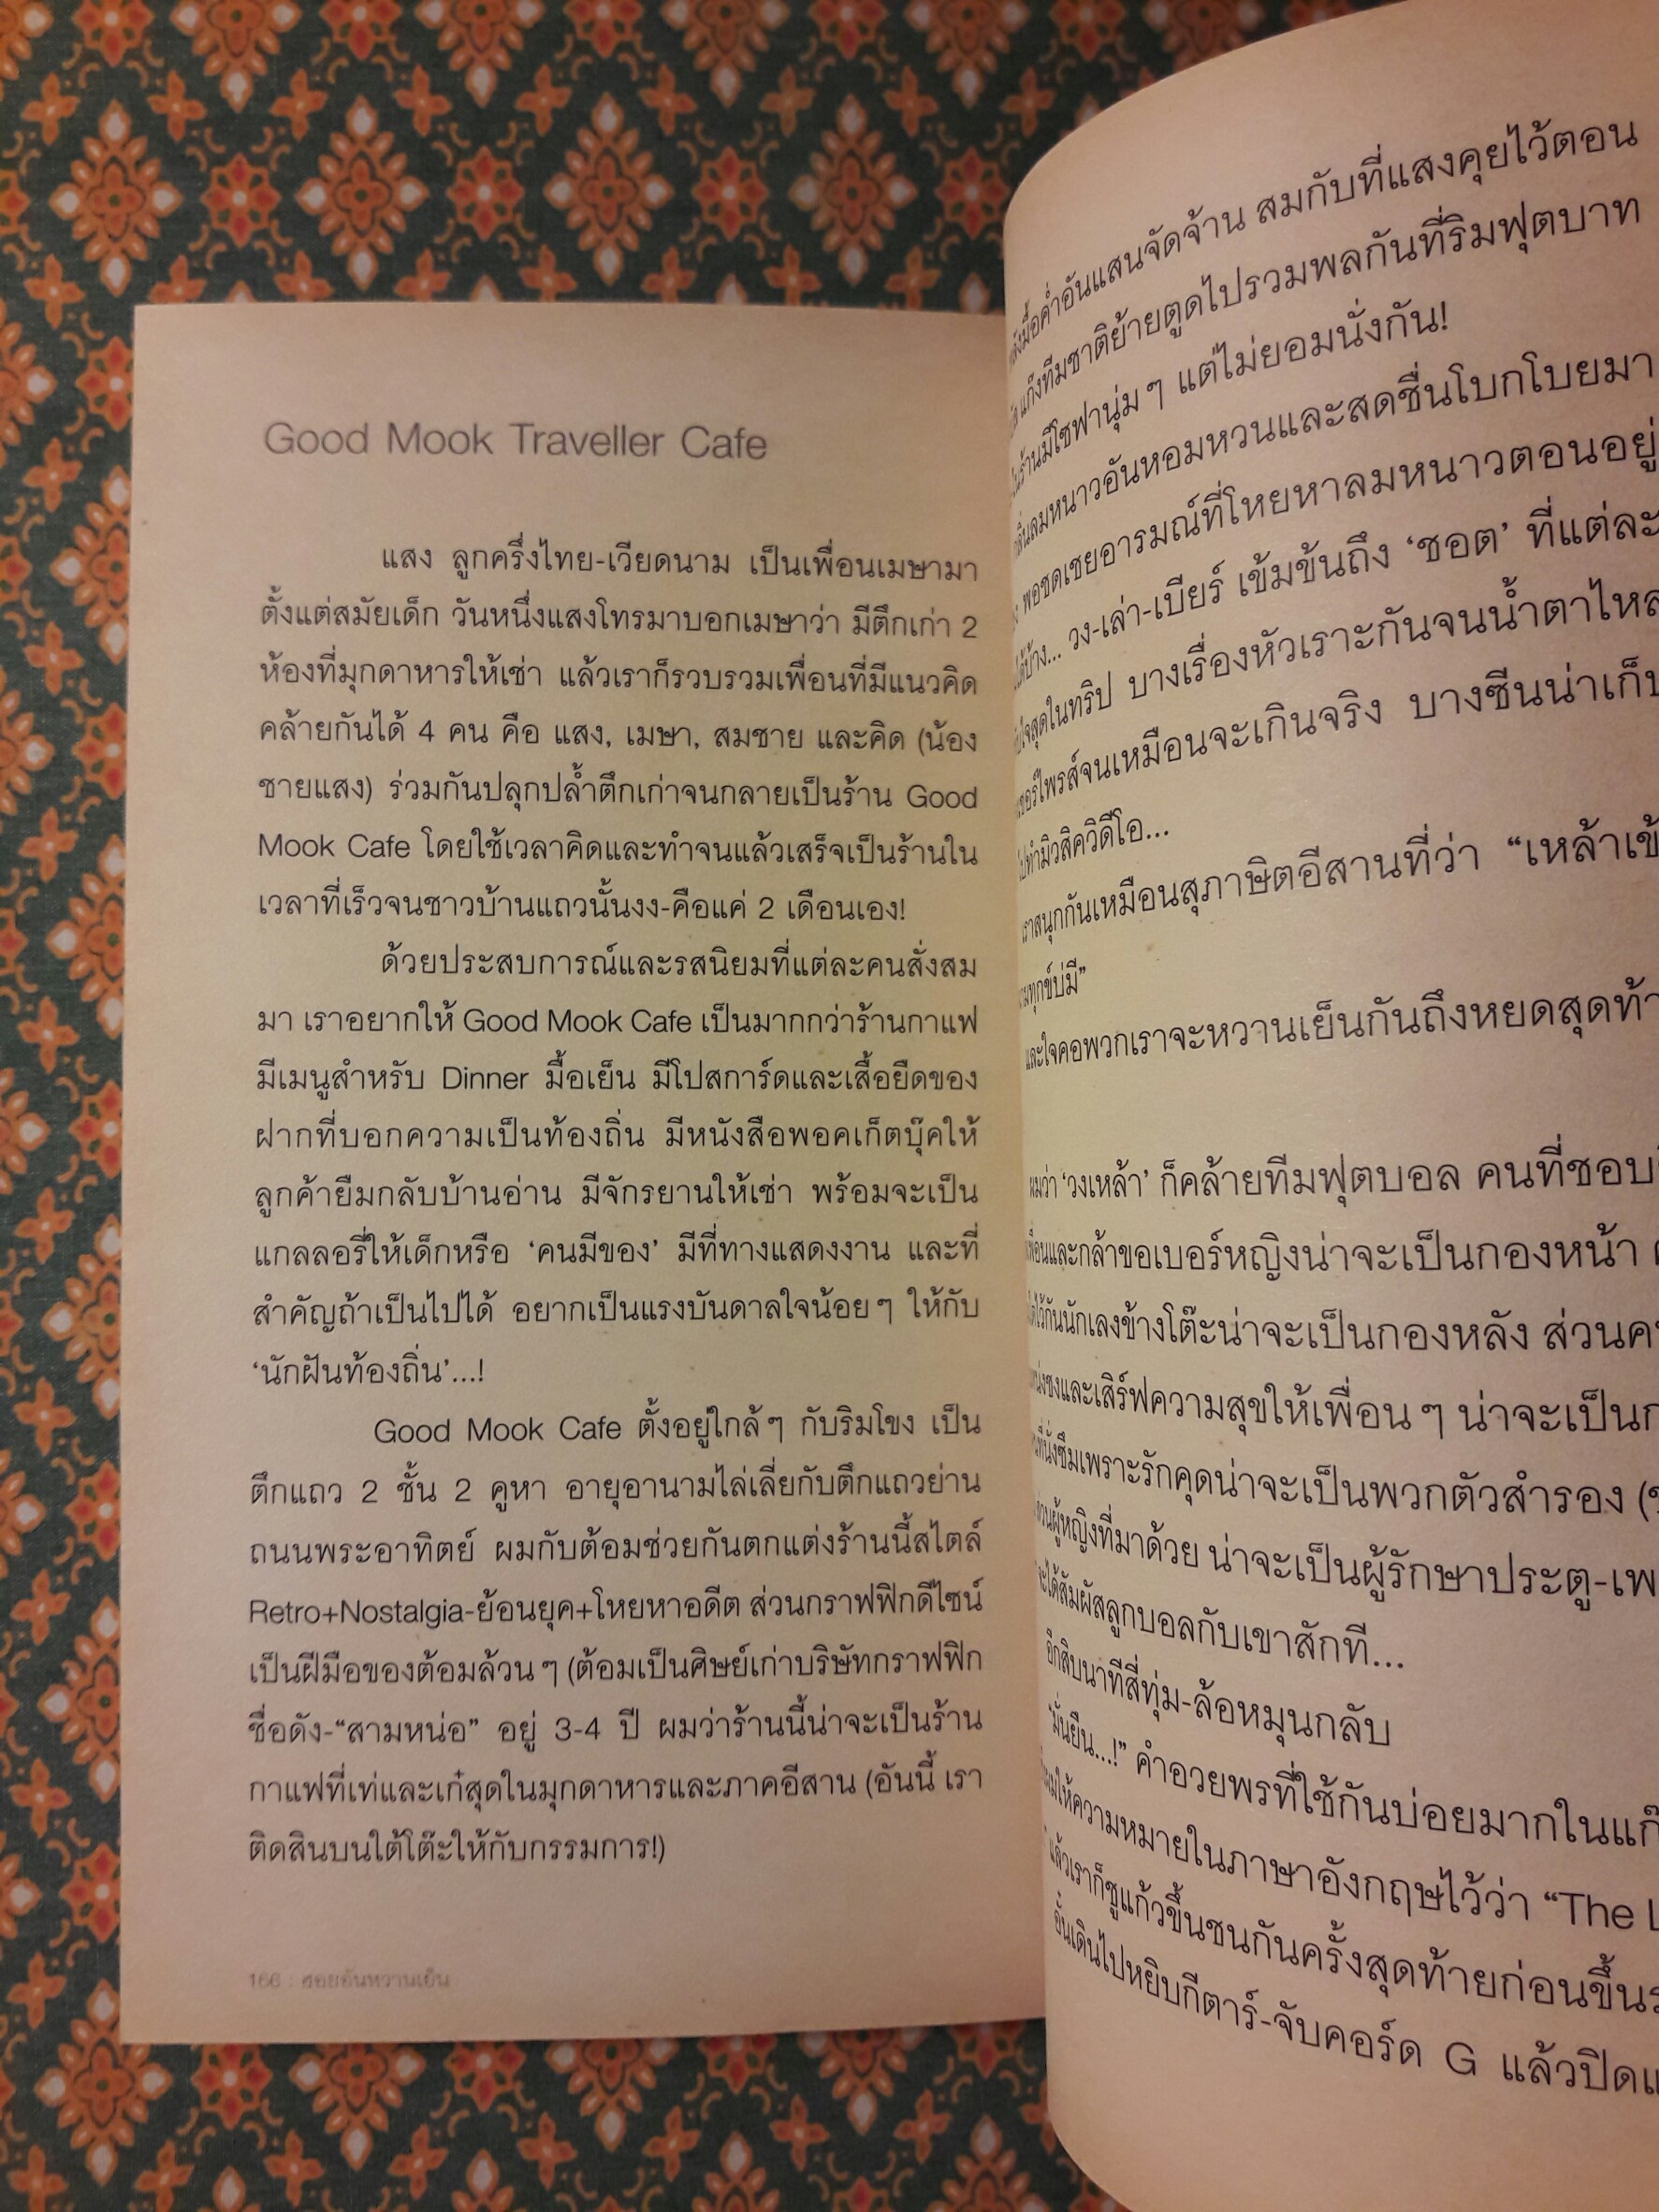 Good Mook Traveller Cafe
แสง ลูกครึ่งไทย-เวียดนาม เป็นเพื่อนเมษามา
ตั้งแต่สมัยเด็ก วันหนึ่งแสงโทรมาบอกเมษาว่า มีตึกเก่า 2
ห้องที่มุกดาหารให้เช่า แล้วเราก็รวบรวมเพื่อนที่มีแนวคิด
คล้ายกันได้ 4 คน คือ แสง, เมษา, สมชาย และคิด (น้อง
ชายแสง) ร่วมกันปลุกปล้ำตึกเก่าจนกลายเป็นร้าน Good
Mook Cafe โดยใช้เวลาคิดและทำจนแล้วเสร็จเป็นร้านใน
เวลาที่เร็วจนชาวบ้านแถวนั้นงง-คือแค่ 2 เดือนเอง!
ด้วยประสบการณ์และรสนิยมที่แต่ละคนสั่งสม
มา เราอยากให้ Good Mook Cafe เป็นมากกว่าร้านกาแฟ
มีเมนูสำหรับ Dinner มื้อเย็น มีโปสการ์ดและเสื้อยืดของ
ฝากที่บอกความเป็นท้องถิ่น มีหนังสือพอคเก็ตบุ๊คให้
ลูกค้ายืมกลับบ้านอ่าน มีจักรยานให้เช่า พร้อมจะเป็น
แกลลอรี่ให้เด็กหรือ ‘คนมีของ’ มีที่ทางแสดงงาน และที่
สำคัญถ้าเป็นไปได้ อยากเป็นแรงบันดาลใจน้อยๆ ให้กับ
‘นักฝันท้องถิ่น’...!
Good Mook Cafe ตั้งอยู่ใกล้ๆ กับริมโขง เป็น
ตึกแถว 2 ชั้น 2 คูหา อายุอานามไล่เลี่ยกับตึกแถวย่าน
ถนนพระอาทิตย์ ผมกับต้อมช่วยกันตกแต่งร้านนี้สไตล์
Retro+Nostalgia-ย้อนยุค+โหยหาอดีต ส่วนกราฟฟิกดีไซน์
เป็นฝีมือของต้อมล้วนๆ (ต้อมเป็นศิษย์เก่าบริษัทกราฟฟิก
ชื่อดัง-“สามหน่อ” อยู่ 3-4 ปี ผมว่าร้านนี้น่าจะเป็นร้าน
กาแฟที่เท่และเก๋สุดในมุกดาหารและภาคอีสาน (อันนี้ เรา
ติดสินบนใต้โต๊ะให้กับกรรมการ!)
166 : ฮอยอันหวานเย็น
มื้อค่ำอันแสนจัดจ้าน สมกับที่แสงคุยไว้ตอน
แก๊งทีมชาติย้ายตูดไปรวมพลกันที่ริมฟุตบาท
ร้านมีโซฟานุ่มๆ แต่ไม่ยอมนั่งกัน!
ลมหนาวอันหอมหวนและสดชื่นโบกโบยมา
พอชดเชยอารมณ์ที่โหยหาลมหนาวตอนอยู่
ได้บ้าง... วง-เล่า-เบียร์ เข้มข้นถึง ‘ชอต’ ที่แต่ละ
สุดในทริป บางเรื่องหัวเราะกันจนน้ำตาไหล
เซอร์ไพรส์จนเหมือนจะเกินจริง บางซีนน่าเก็บ
ไปทำมิวสิควิดีโอ...
เราสนุกกันเหมือนสุภาษิตอีสานที่ว่า “เหล้าเข้
ทุกข์บ่มี”
และใจคอพวกเราจะหวานเย็นกันถึงหยดสุดท้า
ผมว่า ‘วงเหล้า’ ก็คล้ายทีมฟุตบอล คนที่ชอบ
เพื่อนและกล้าขอเบอร์หญิงน่าจะเป็นกองหน้า
ไว้กันนักเลงข้างโต๊ะน่าจะเป็นกองหลัง ส่วนค
ชงและเสิร์ฟความสุขให้เพื่อนๆ น่าจะเป็นก
ที่นั่งซึมเพราะรักคุดน่าจะเป็นพวกตัวสำรอง
ส่วนผู้หญิงที่มาด้วย น่าจะเป็นผู้รักษาประตู-เพ
จะได้สัมผัสลูกบอลกับเขาสักที...
อีกสิบนาทีสี่ทุ่ม-ล้อหมุนกลับ
“มั่นยืน...!” คำอวยพรที่ใช้กันบ่อยมากในแก๊
ให้ความหมายในภาษาอังกฤษไว้ว่า “The L
แล้วเราก็ชูแก้วขึ้นชนกันครั้งสุดท้ายก่อนขึ้นร
เดินไปหยิบกีตาร์-จับคอร์ด G แล้วปิดแ